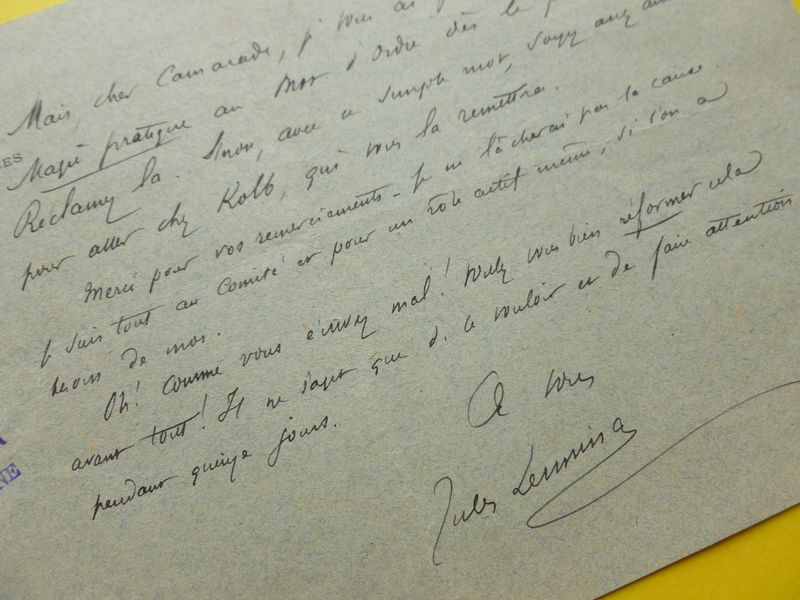 Mais, cher Camarade, je vous ai
Magie pratique au Mot d'Ordre dès le
Reclamez la. Sinon, avec ce simple mot, soyez assez
pour aller chez Kolb, qui vous la remettra.
Merci pour vos remerciements - Je ne lâcherai pas la cause.
Je suis tout au Comité et pour un rôle actif même, si l'on a
besoin de moi.
Oh! comme vous écrivez mal! Voulez vous bien réformer cela
avant tout! Il ne s'agit que de le vouloir et de faire attention
pendant quinze jours.
A vous
Jules Lermina
RES
A
NE